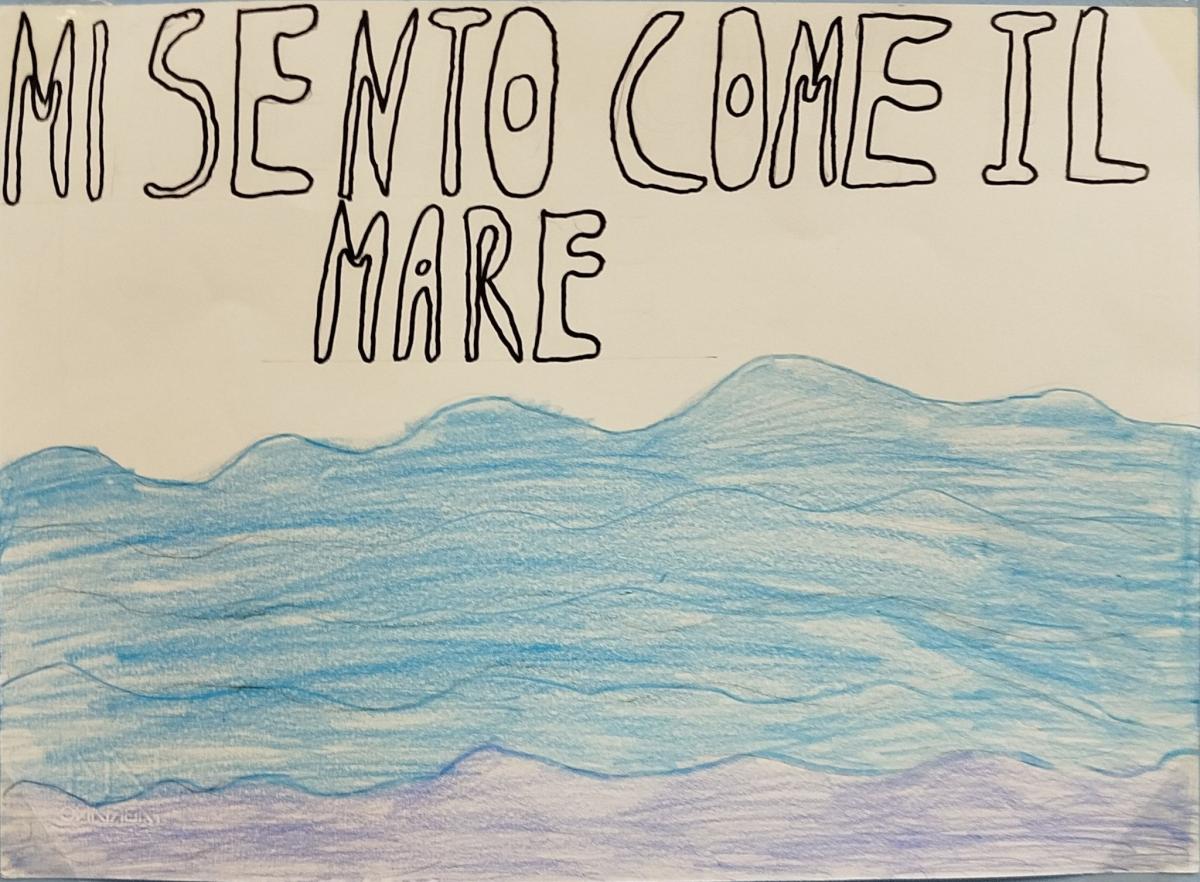 MI SENTO COME IL
MARE